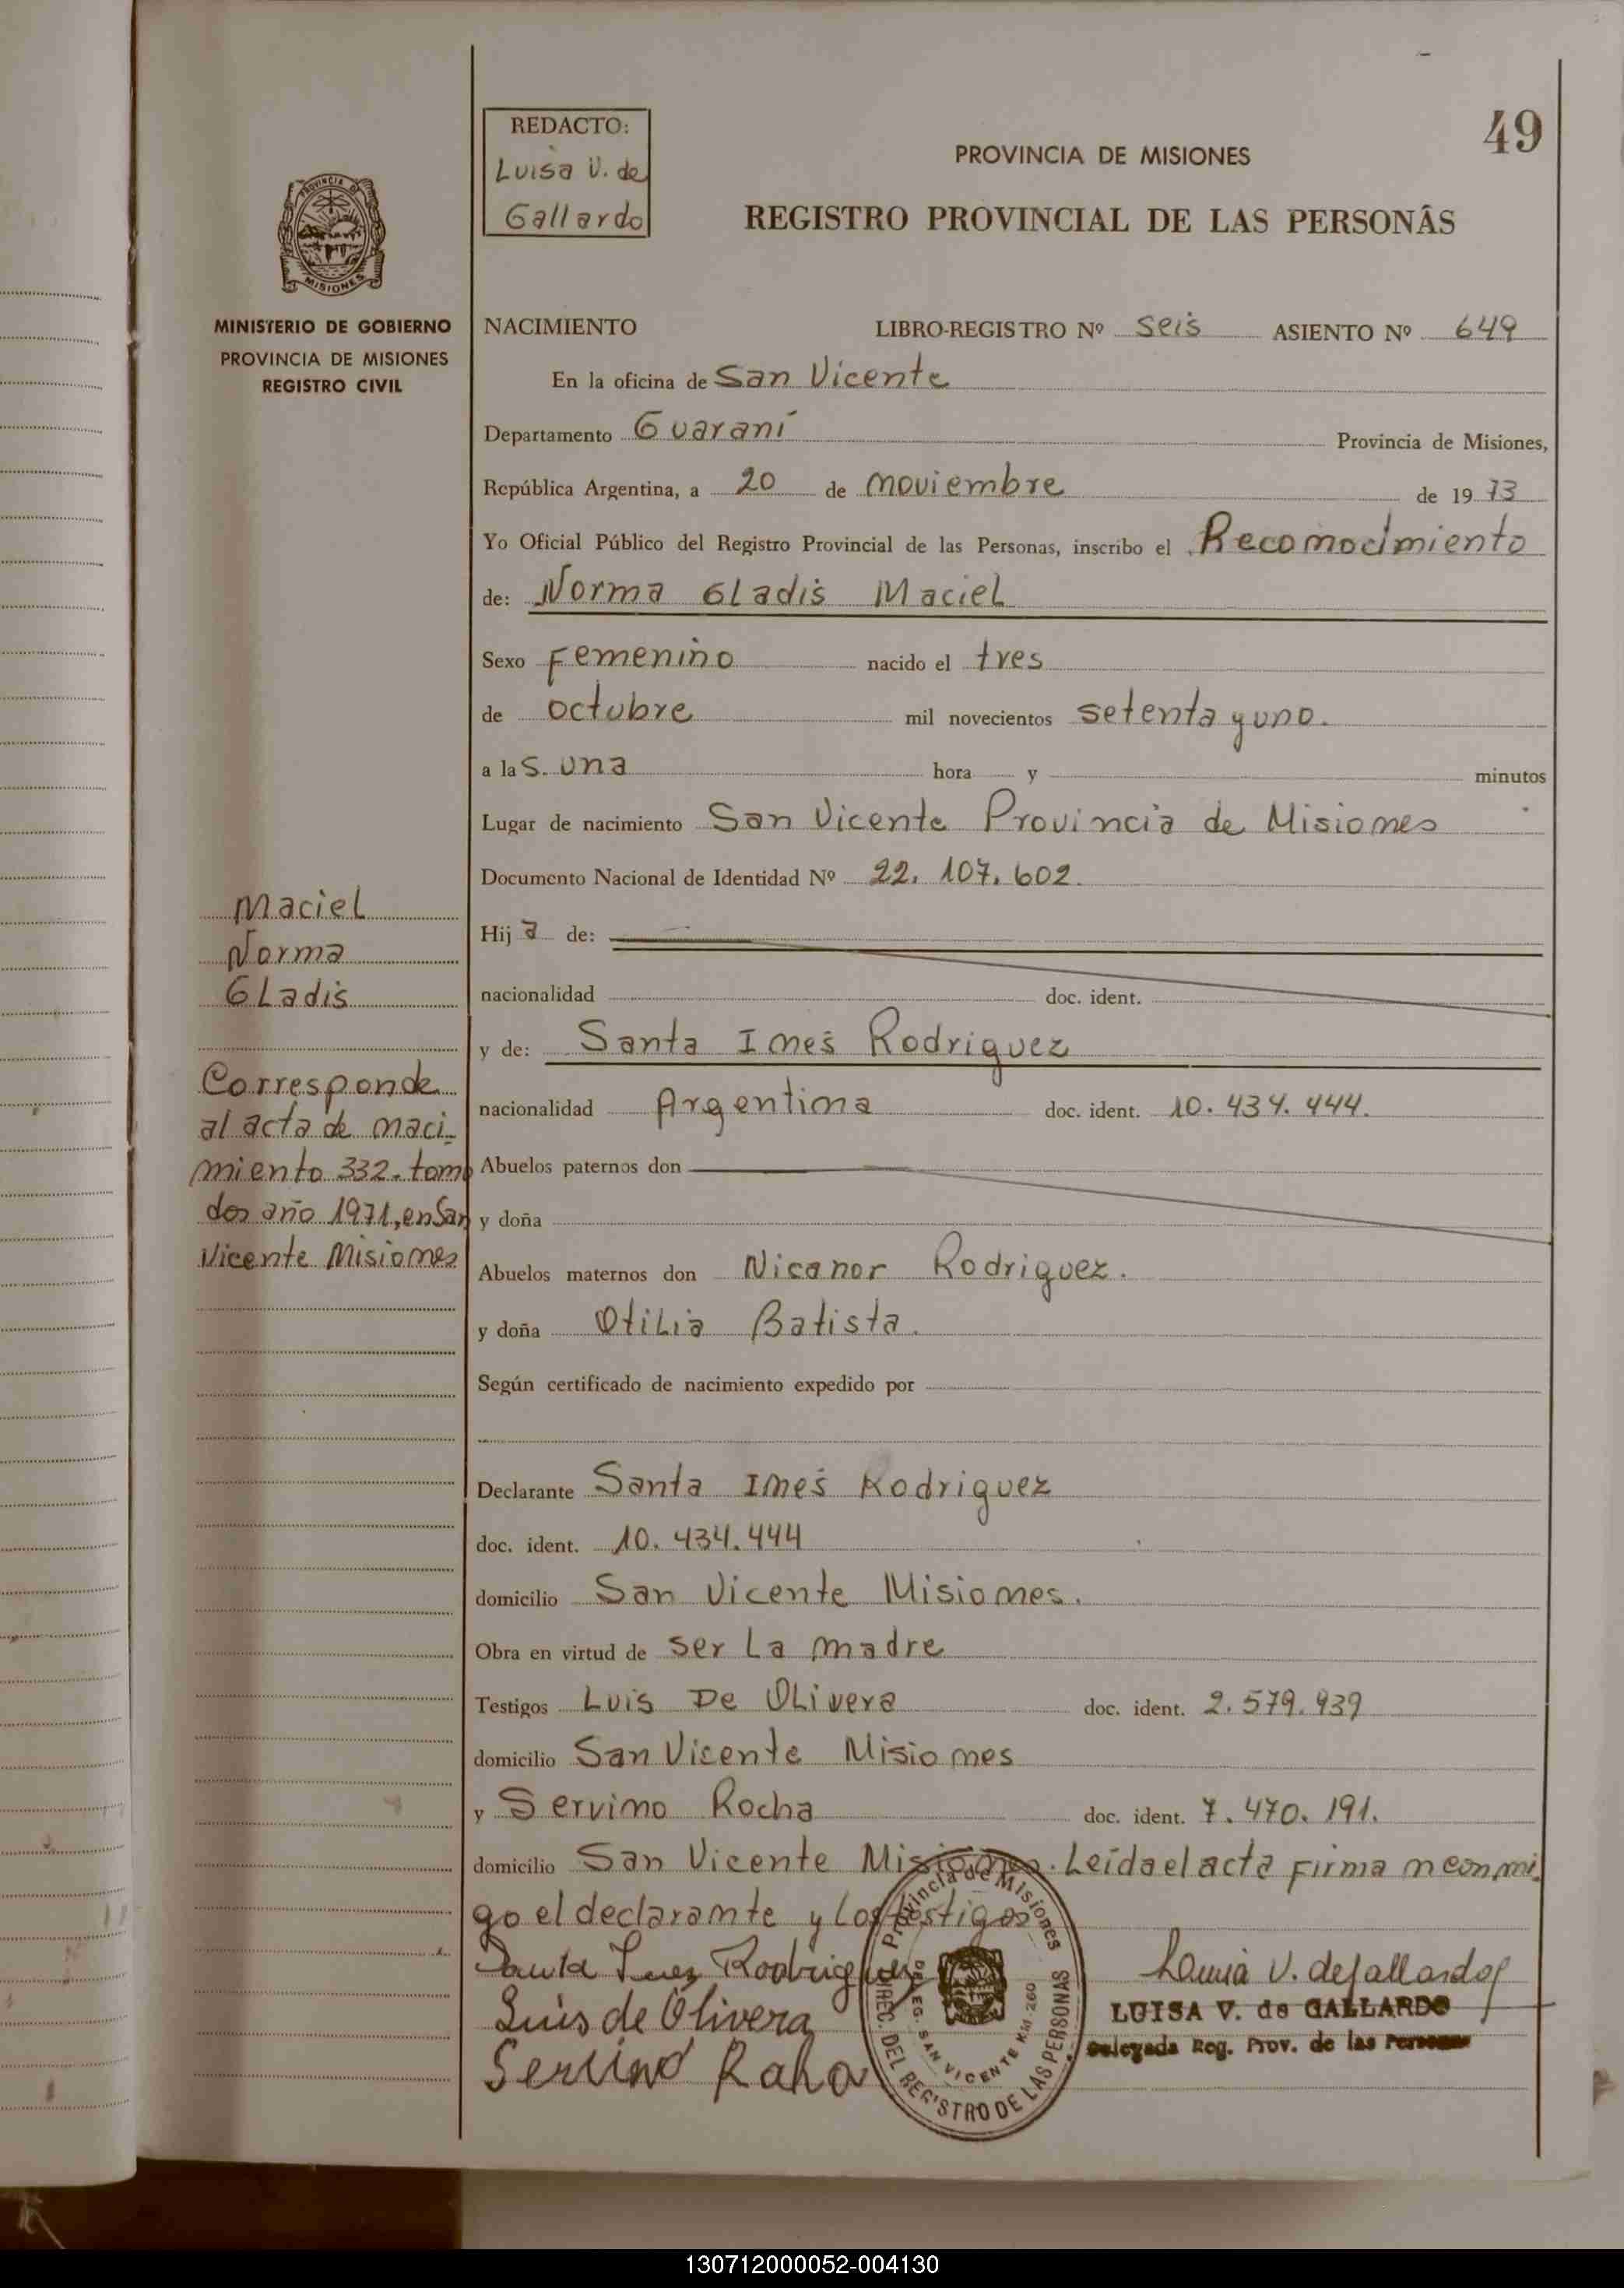 49
REDACTO:
Luisa V. de
Gallardo
PROVINCIA DE MISIONES
REGISTRO PROVINCIAL DE LAS PERSONAS
PROVINCIA DE
MISIONES
MINISTERIO DE GOBIERNO
PROVINCIA DE MISIONES
REGISTRO CIVIL
NACIMIENTO LIBRO-REGISTRO Nº seis ASIENTO Nº 649
En la oficina de San Vicente
Departamento Guaraní Provincia de Misiones,
República Argentina, a 20 de noviembre de 1973
Yo Oficial Público del Registro Provincial de las Personas, inscribo el Reconocimiento
de: Norma Gladis Maciel
Sexo Femenino nacido el tres
de octubre mil novecientos setenta y uno.
a las. una hora y minutos
Lugar de nacimiento San Vicente Provincia de Misiones
Documento Nacional de Identidad Nº 22.107.602.
Hija de:
nacionalidad doc. ident.
y de: Santa Inés Rodriguez
nacionalidad Argentina doc. ident. 10.434.444.
Abuelos paternos don
y doña
Abuelos maternos don Nicanor Rodriguez.
y doña Otilia Batista.
Según certificado de nacimiento expedido por
Declarante Santa Inés Rodriguez
doc. ident. 10.434.444
domicilio San Vicente Misiones.
Obra en virtud de ser la madre
Testigos Luis De Olivera doc. ident. 2.579.939
domicilio San Vicente Misiones
y Servino Rocha doc. ident. 7.470.191.
domicilio San Vicente Misiones. Leída el acta firma n conmi
go el declarante y los testigos
Maciel
Norma
Gladis
Corresponde
al acta de naci-
miento 332. tomo
dos año 1971, en San
Vicente Misiones
Santa Inez Rodriguez
Luis de Olivera
Servino Raha
Provincia de Misiones
DIREC. DEL REGISTRO DE LAS PERSONAS
DELEG. SAN VICENTE KM. 260
Luisa V. de Gallardo
LUISA V. de GALLARDO
Delegada Reg. Prov. de las Personas
130712000052-004130